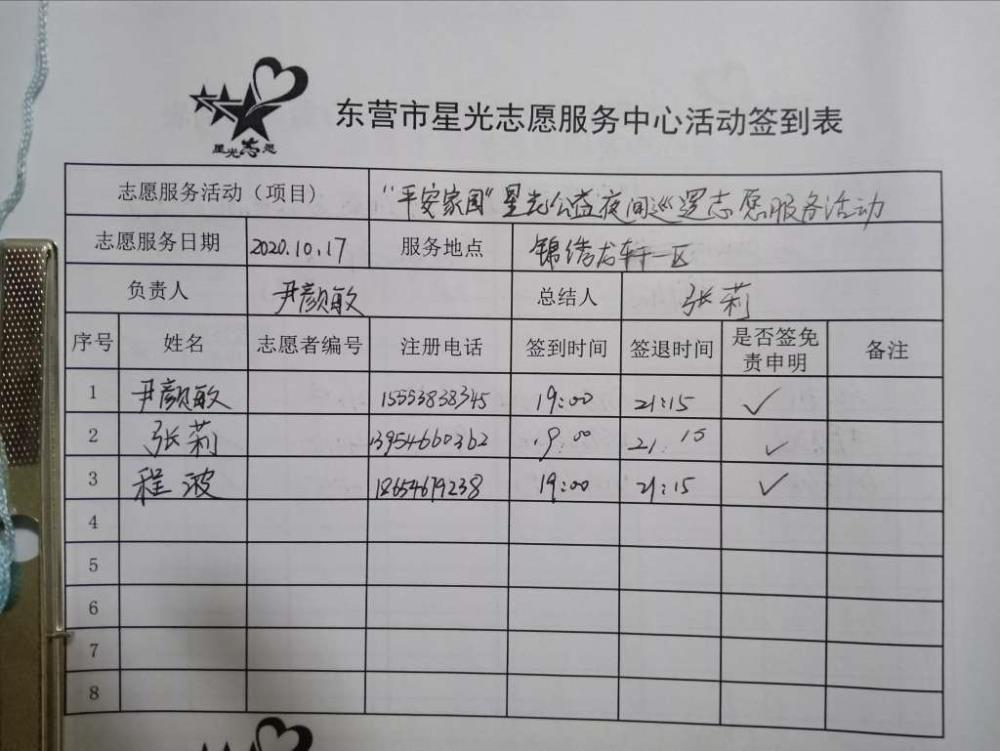 星光志愿
东营市星光志愿服务中心活动签到表
志愿服务活动（项目） “平安家园”星光公益夜间巡逻志愿服务活动
志愿服务日期 2020.10.17 服务地点 锦绣龙轩一区
负责人 尹颜敏 总结人 张莉
序号 姓名 志愿者编号 注册电话 签到时间 签退时间 是否签免 备注
责申明
1 尹颜敏 15553838345 19:00 21:15 ✓
2 张莉 13954660362 19:00 21:15 ✓
3 程波 18654619238 19:00 21:15 ✓
4
5
6
7
8